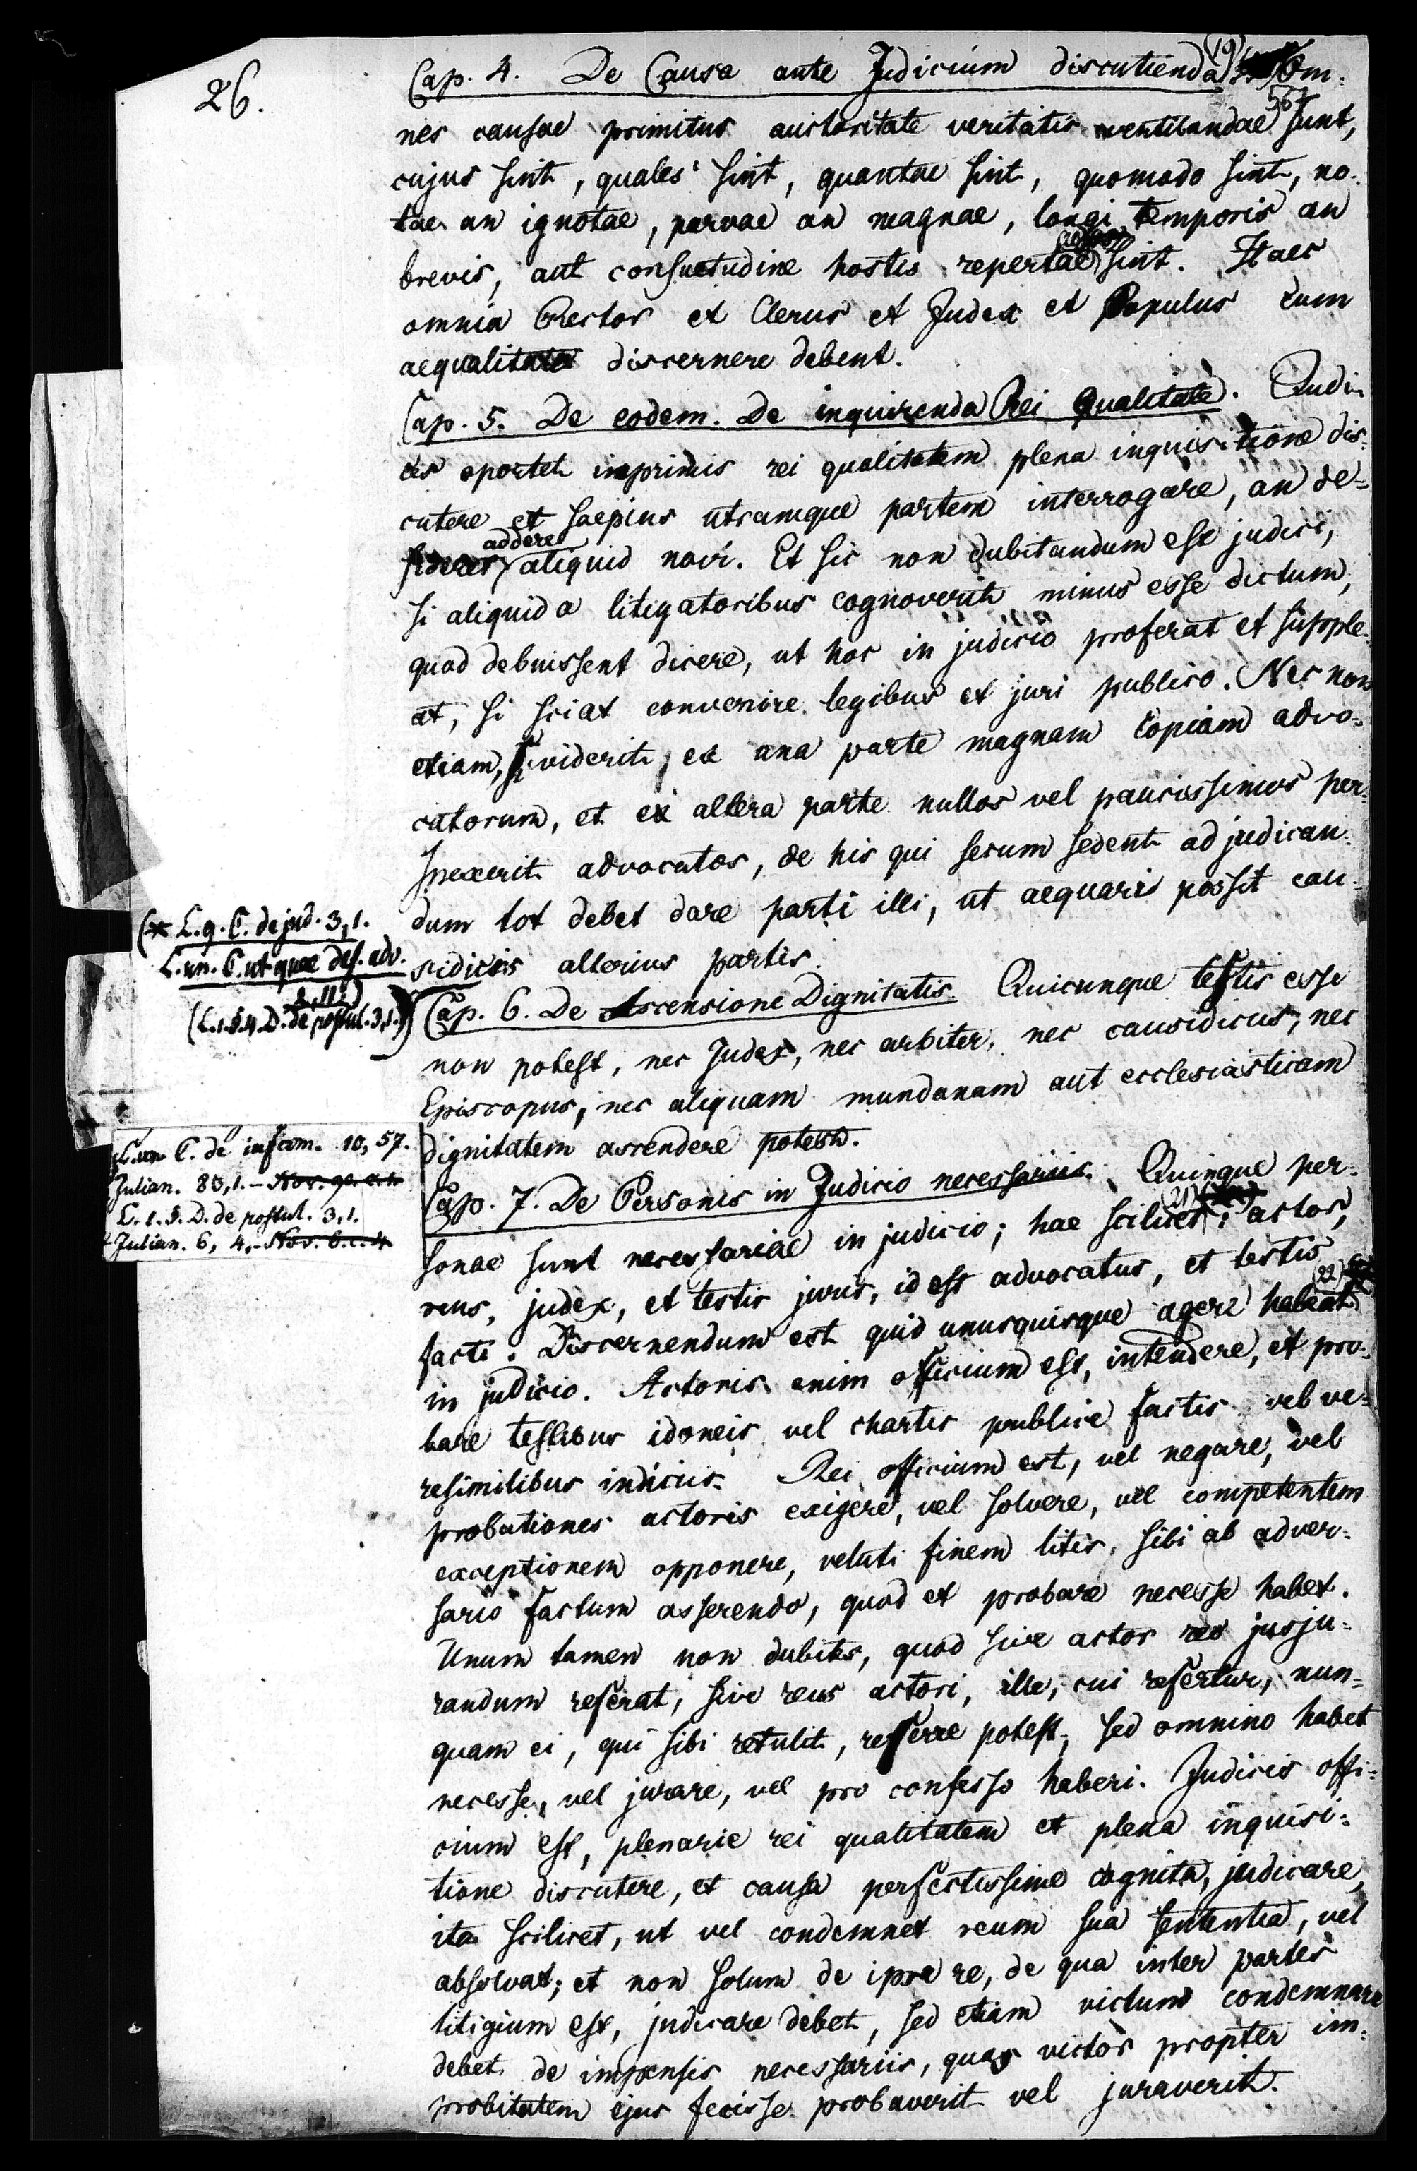 26.
Cap. 4. De Causa ante Judicium discutienda (19) Om-
nes causae primitus auctoritate veritatis ventilandae sunt, 567
cujus sint, quales sint, quantae sint, quomodo sint, no-
tae an ignotae, parvae an magnae, longi temporis an
brevis, aut consuetudine hostis repertae sint. Haec
omnia Rector et Clerus et Judex et Populus cum
aequalitate discernere debent.
Cap. 5. De eodem. De inquirenda Rei Qualitate. Judi-
ces oportet inprimis rei qualitatem plena inquisitione dis-
cutere et saepius utramque partem interrogare, an de-
sideret addere aliquid novi. Et sic non dubitandum est judici,
si aliquid a litigatoribus cognoverit minus esse dictum,
quod debuissent dicere, ut hoc in judicio proferat et supple-
at, si sciat convenire legibus et juri publico. Nec non
etiam, si viderit, ex una parte magnam copiam advo-
catorum, et ex altera parte nullos vel paucissimos per-
spexerit advocatos, de his qui secum sedent ad judican-
dum tot debet dare parti illi, ut aequari possit cau-
sidicis alterius partis.
(* L. 9. C. de jud. 3, 1.
L. un. C. ut quae des. adv.
2, 11.)
(L. 1. §. 4. D. de postul. 3, 1.)
Cap. 6. De Ascensione Dignitatis. Quicunque testis esse
non potest, nec Judex, nec arbiter, nec causidicus, nec
Episcopus, nec aliquam mundanam aut ecclesiasticam
dignitatem ascendere potest.
L. un. C. de infam. 10, 57.
Julian. 83, 1. - Nov. 90. c. 1.
L. 1. §. D. de postul. 3, 1.
Julian. 6, 4. - Nov. 6. c. 4
Cap. 7. De Personis in Judicio necessariis. Quinque per-
sonae sunt necessariae in judicio; hae scilicet (21): actor,
reus, judex, et testis juris, id est advocatus, et testis
facti. Discernendum est quid unusquisque agere habeat (22)
in judicio. Actoris enim officium est, intendere, et pro-
bare testibus idoneis vel chartis publice factis vel ve-
resimilibus indiciis. Rei officium est, vel negare, vel
probationes actoris exigere, vel solvere, vel competentem
exceptionem opponere, veluti finem litis, sibi ab adver-
sario factum asserendo, quod et probare necesse habet.
Unum tamen non dubites, quod sive actor reo jusju-
randum referat, sive reus actori, ille, cui refertur, nun-
quam ei, qui sibi retulit, referre potest, sed omnino habet
necesse, vel jurare, vel pro confesso haberi. Judicis offi-
cium est, plenarie rei qualitatem et plena inquisi-
tione discutere, et causa perfectissime cognita, judicare,
ita scilicet, ut vel condemnet reum sua sententia, vel
absolvat; et non solum de ipsa re, de qua inter partes
litigium est, judicare debet, sed etiam victum condemnare
debet de impensis necessariis, quas victor propter im-
probitatem ejus fecisse probaverit vel juraverit.